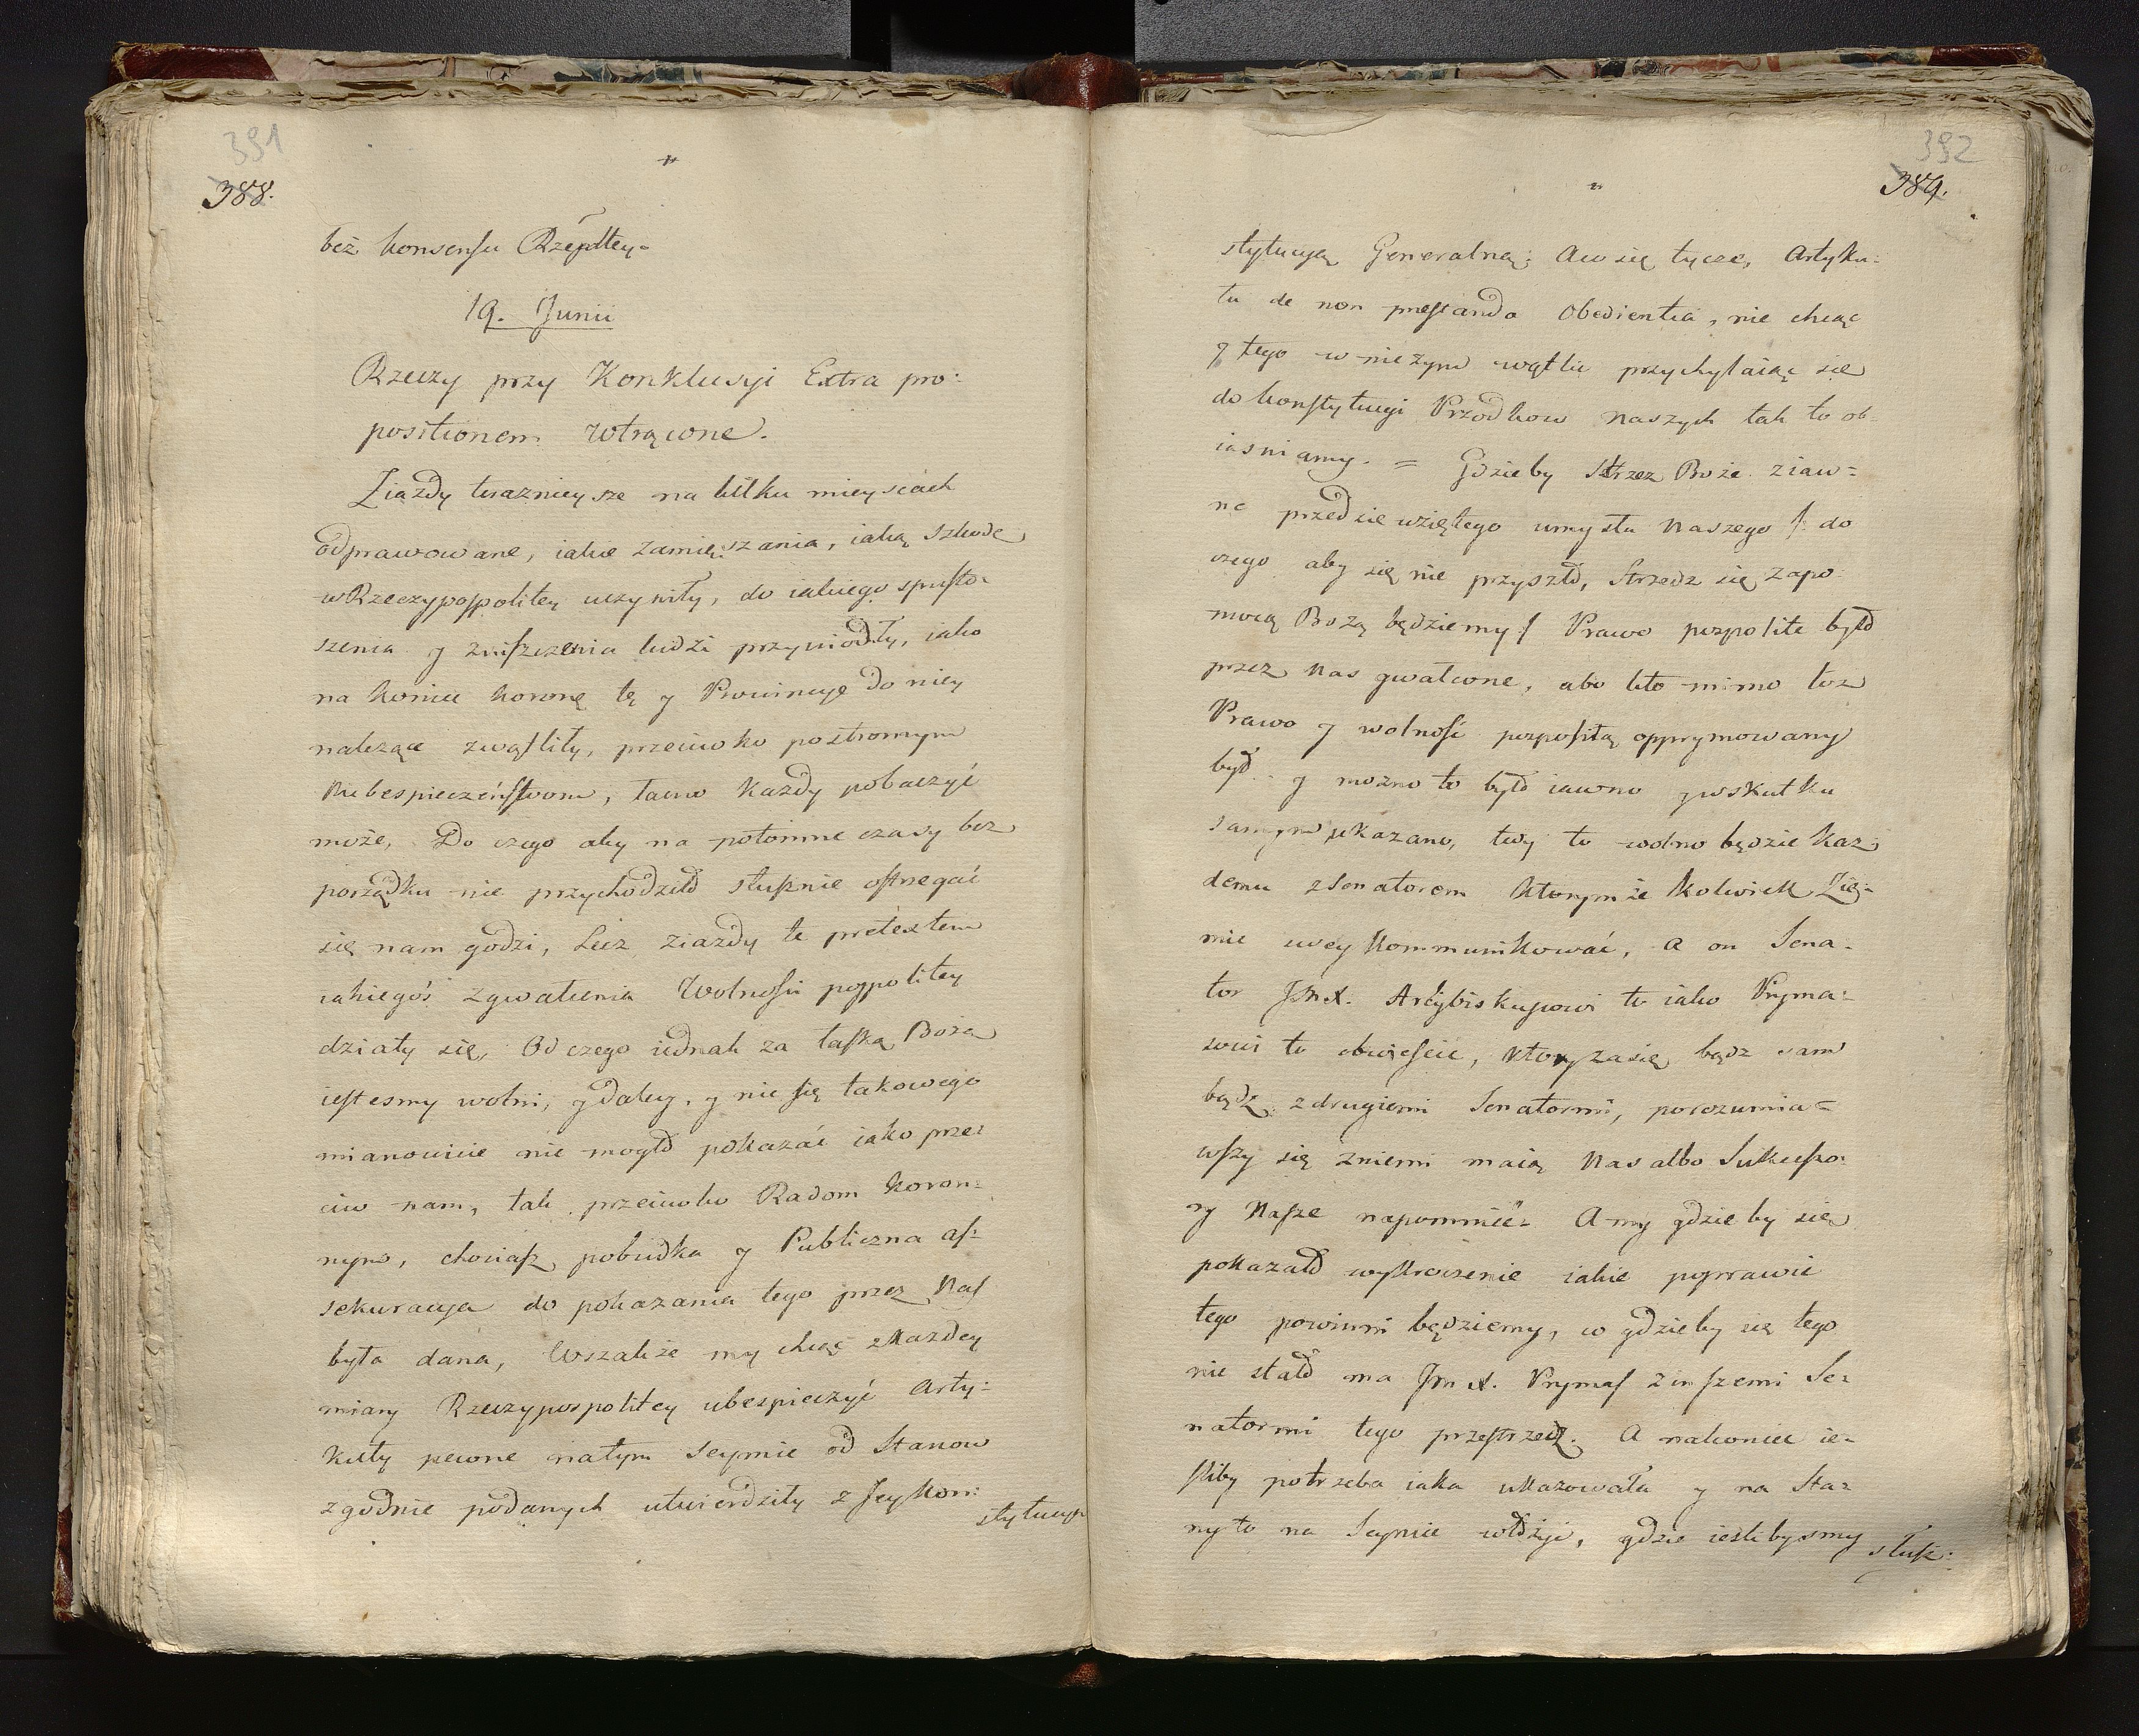 391
388.
bez konsensu Rzepltey.
19. Junii
Rzeczy przy Konklusyi Extra pro:
positionem wtrącone.
Ziazdy teraznieysze na kilku mieyscach
odprawowane, iakie zamięszania, iaką szkodę
w Rzeczypospolitey uczyniły, do iakiego spusto:
szenia y zniszczenia ludzi przywiodły, iako
na koniec koronę tę y Prowincye do niey
nalezące zwąthliły, przeciwko postronnym
Niebespieczeństwom, łacno każdy pobaczyć
może, Do czego aby na potomne czasy bez
porządku nie przychodziło słusznie ostrzegać
się nam godzi, Lecz ziazdy te pretextem
iakiegoś zgwałcenia Wolności pospolitey
działy się, Od czego iednak za łaską Bożą
iestesmy wolni, y daley, y nic się takowego
mianowicie nie mogło pokazać iako prze:
ciw nam, tak przeciwko Radom koron:
nym, chociasz pobudka y Publiczna as:
sekuracya do pokazania tego przez Nas
była dana, Wszakże my chcąc z każdey
miary Rzeczypospolitey ubespieczyć Arty:
kuły pewne na tym Seymie od Stanow
zgodnie podanych utwierdziły z Jey Kon:
stytucyą
392
389.
stytucyą Generalną; A co się tycze, Artyku:
łu de non prestando Obedientia, nie chcąc
y tego w niczym wątlić przychylaiąc się
do konstytucyi Przodkow Naszych tak to ob:
iasniamy. = Gdzieby Strzez Boże ziaw:
ne przedsiewziętego umysłu Naszego /: do
czego aby się nie przyszło, Strzedz się za po:
mocą Bożą będziemy / Prawo pospolite było
przez Nas gwałcone, abo kto mimo toz
Prawo y wolność pospolitą opprymowany
był y mozno to było iawno y w skutku
samym ukazano, tedy to wolno będzie kaz:
demu z Senatorem ktorymże kolwiek Zie:
mie swey kommunikować, a on Sena:
tor JmX. Arcybiskupowi to iako Pryma:
sowi to obwieście, ktory zasię bądz sam
bądz z drugiemi Senatormi, porozumia:
wszy się z niemi maią Nas albo Sukcesso:
ry Nasze napomnieć. A my gdzieby się
pokazało wykroczenie iakie poprawić
tego powinni będziemy, co gdzieby się tego
nie stało ma JmX. Prymas z inszemi Se:
natormi tego przestrzedz. A nakoniec ie:
sliby potrzeba iaka ukazowała y na Sta:
ny to na Seymie włożyć, gdzie ieslibysmy
słusz: